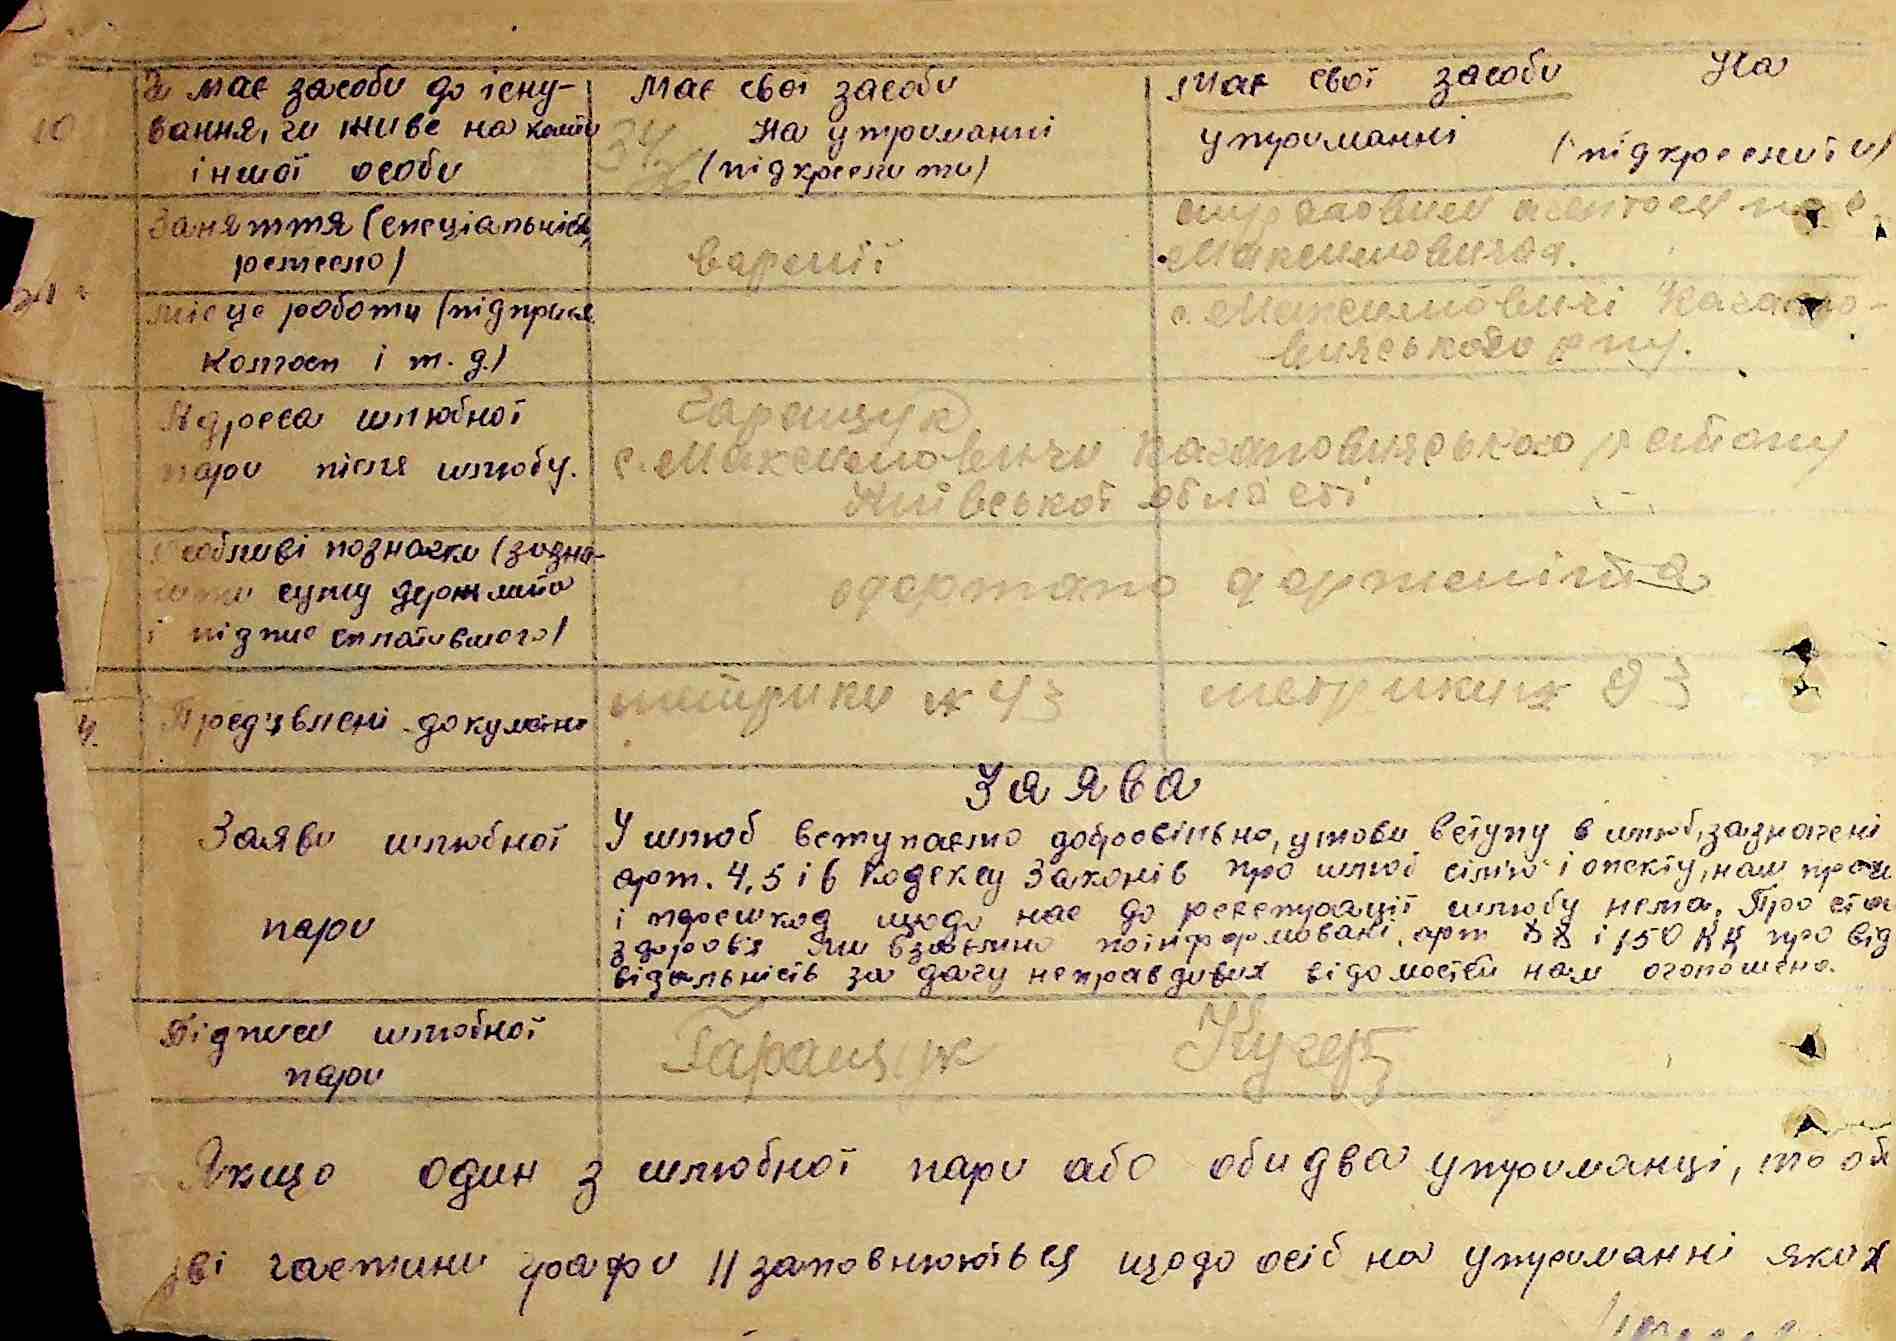 10
Чи має засоби до існу-
вання, чи живе на кошти
іншої особи
Має свої засоби
На утриманні
(підкреслити)
Має свої засоби На
утриманні (підкреслити)
Заняття (спеціальність,
ремесло)
Максимовичах.
Місце роботи (підприєм
колгосп і т. д.)
с. Максимовичі Кагано-
вичського р-ну.
Адреса шлюбної
пари після шлюбу.
Гаращук
с. Максимовичи Кагановичського району
Київської області
Особливі позначки (зазна-
чити суму держмита
і підпис сплатившого)
одержано держмита
Пред'явлені документи
метрики № 43
метрики № 93
Заяви шлюбної
пари
Заява
У шлюб вступаємо добровільно, умови вступу в шлюб, зазначені
арт. 4, 5 і 6 Кодексу Законів про шлюб сім'ю і опеку, нам
і перешкод щодо нас до реєстрації шлюбу нема. Про стан
здоров'я ми взаємно поінформовані, арт 88 і 150 КК про від
відальність за дачу неправдивих відомостей нам оголошено.
Підписи шлюбної
пари
Гаращук
Кучер
Якщо один з шлюбної пари або обидва утриманці, то
дві частини графи 11 заповнюються щодо осіб на утриманні яких